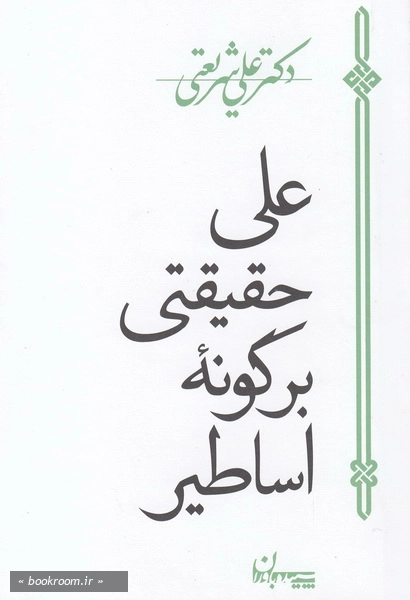 دکتر علی شریعتی
علی
حقیقتی
بر گونهٔ
اساطیر
سپیده باوران
« bookroom.ir »